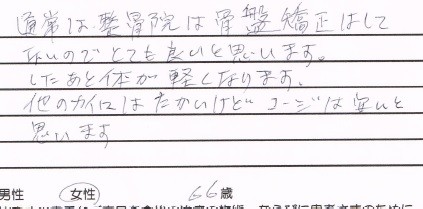 通常は整骨院は骨盤矯正はして
ないのでとても良いと思います。
したあと体が軽くなります、
他のカイロはたかいけどコージは安いと
思います
男性 女性 66歳